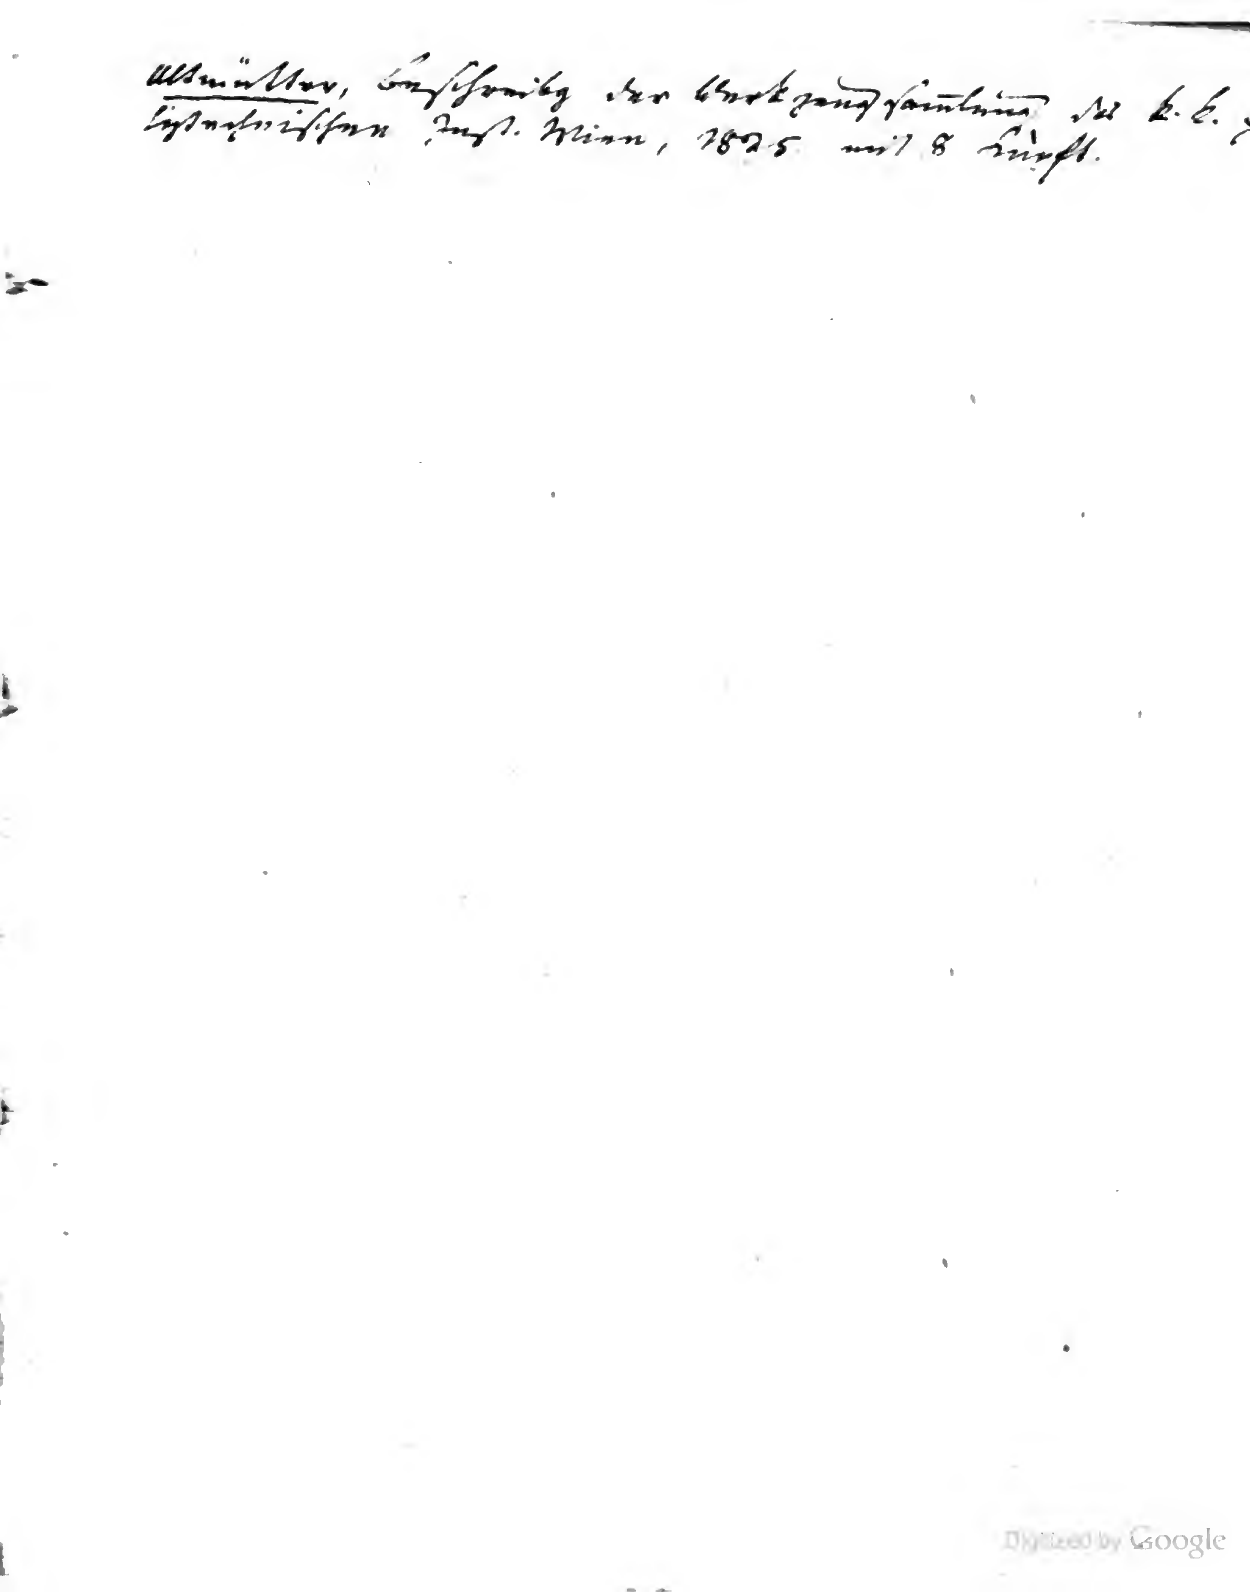 Altmütter, Beschreibg der Werkzeugsam̅lung des k. k. p
lytechnischen Inst. Wien, 1825 mit 8 Kupft.
Digitized by Google